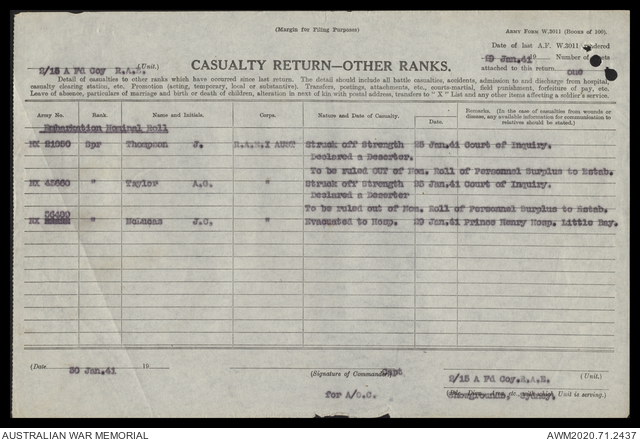 (Margin for Filing Purposes)
ARMY FORM W.3011 (BOOKS OF 100).
Date of last A.F. W.3011 rendered
29 Jan.41 19 Number of sheets
2/15 A Fd Coy R.A.E. (Unit.)
CASUALTY RETURN—OTHER RANKS.
attached to this return one
Detail of casualties to other ranks which have occurred since last return. The detail should include all battle casualties, accidents, admission to and discharge from hospital,
casualty clearing station, etc. Promotion (acting, temporary, local or substantive). Transfers, postings, attachments, etc., courts-martial, field punishment, forfeiture of pay, etc.
Leave of absence, particulars of marriage and birth or death of children, alteration in next of kin with postal address, transfers to "X" List and any other items affecting a soldier's service.
Army No. Rank. Name and Initials. Corps. Nature and Date of Casualty. Date. Remarks. (In the case of casualties from wounds or disease, any available information for communication to relatives should be stated.)
Embarkation Nominal Roll
NX Spr Thompson J. R.A.E. Struck off Strength 25 Jan.41 Court of Inquiry.
Declared a Deserter.
To be ruled out of Nom. Roll of Personnel Surplus to Estab.
NX " Taylor A.G. " Struck off Strength 25 Jan.41 Court of Inquiry.
Declared a Deserter
To be ruled out of Nom. Roll of Personnel Surplus to Estab.
NX " McLucas J.C. " Evacuated to Hosp. 29 Jan.41 Prince Henry Hosp. Little Bay.
(Date 30 Jan.41 19
(Signature of Commander) Capt
for A/O.C.
2/15 A Fd Coy.R.A.E. (Unit.)
(Bde. Divn. Area, etc., with which Unit is serving.)
Showgrounds, Sydney.
AUSTRALIAN WAR MEMORIAL
AWM2020.71.2437